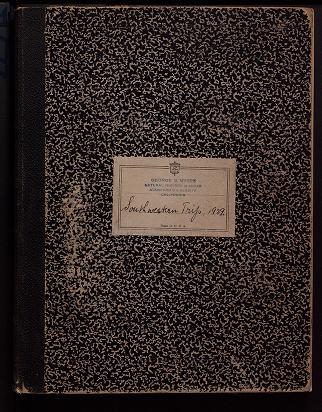 GEORGE S. MYERS
NATURAL HISTORY MUSEUM
STANFORD UNIVERSITY
CALIFORNIA
Southwestern Trip, 1929.